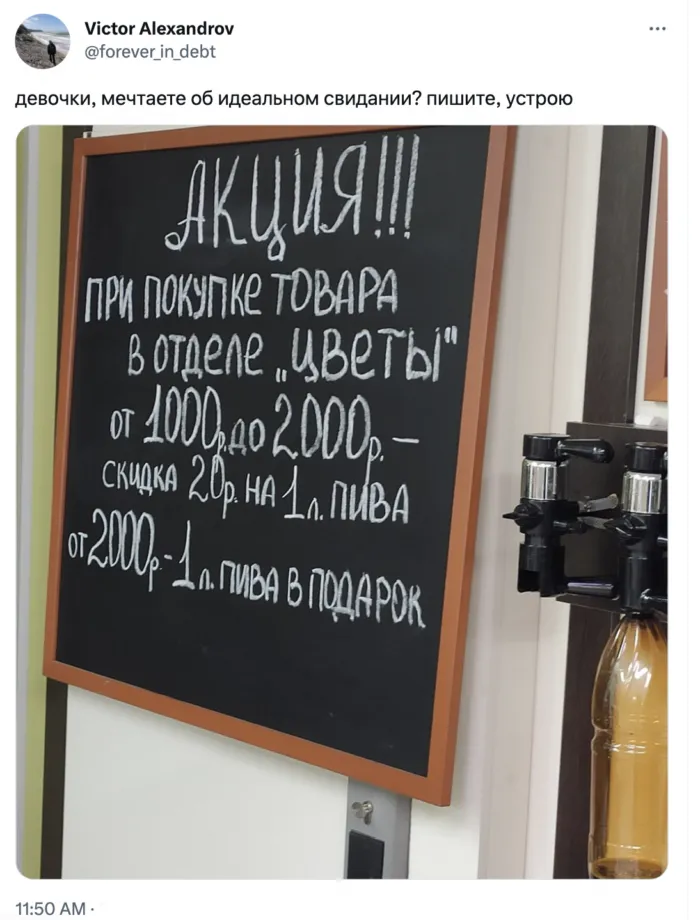 Victor Alexandrov
@forever_in_debt
девочки, мечтаете об идеальном свидании? пишите, устрою
АКЦИЯ!!!
ПРИ ПОКУПКЕ ТОВАРА
В ОТДЕЛЕ „ЦВЕТЫ"
от 1000р. до 2000р. –
скидка 20р. на 1 л. пива
от 2000р – 1 л. пива в подарок
11:50 AM ·